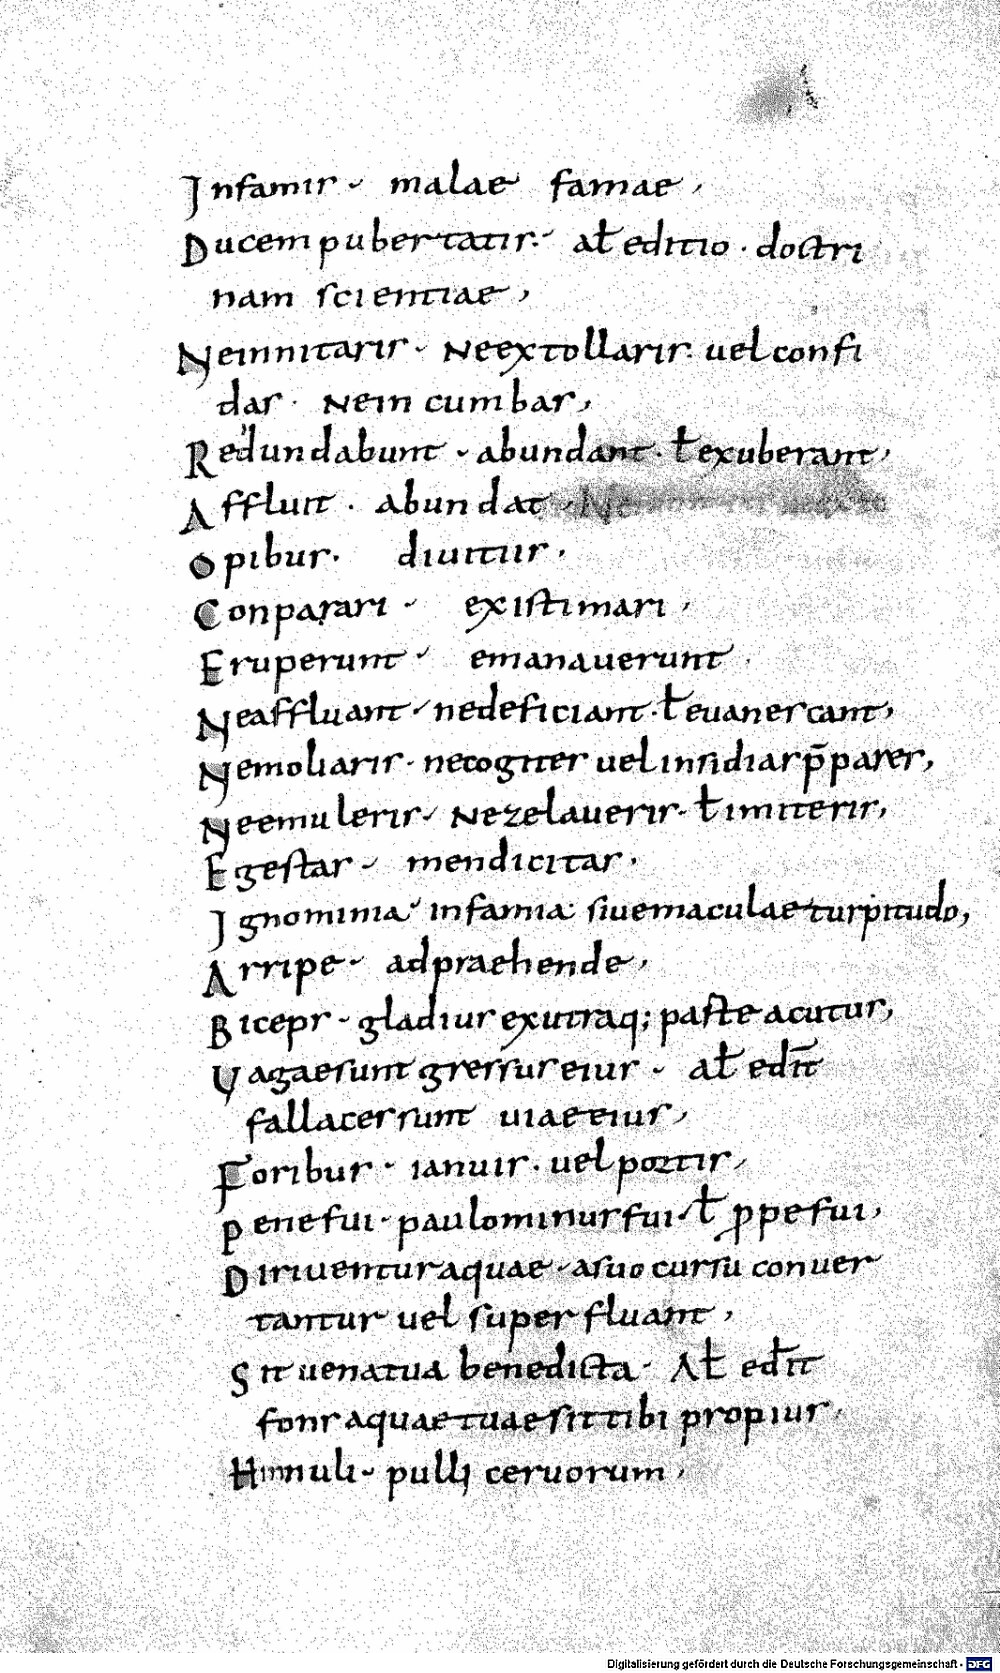 Infamis · malae famae,
Ducem pubertatis · al̄ editio · doctri
nam scientiae,
Neinnitaris · Neextollaris · uel confi
das · Neincumbas,
Redundabunt · abundant · ł exuberant,
Affluit · abundat ·
Opibus · diuitiis ·
Conparari · existimari,
Eruperunt · emanauerunt ·
Neaffluant · nedeficiant · ł euanescant,
Nemoliaris · necogites uel insidias p̄pares,
Neemuleris · Nezelaueris · ł imiteris,
Egestas · mendicitas ·
Ignominia · infamia · siue maculae turpitudo,
Arripe · adpraehende,
Biceps · gladius ex utraq; paste acutus,
Vagae sunt gressus eius · al̄ edīt
fallaces sunt uiae eius,
Foribus · ianuis · uel portis,
Pene fui · paulominus fui · ł ꝓpe fui,
Diriuentur aquae · a suo cursu conuer
tantur uel super fluant,
Sit uena tua benedicta · Al̄ edīt
fons aquae tuae sit tibi propius ·
Hinnuli · pulli ceruorum,
Digitalisierung gefördert durch die Deutsche Forschungsgemeinschaft - DFG